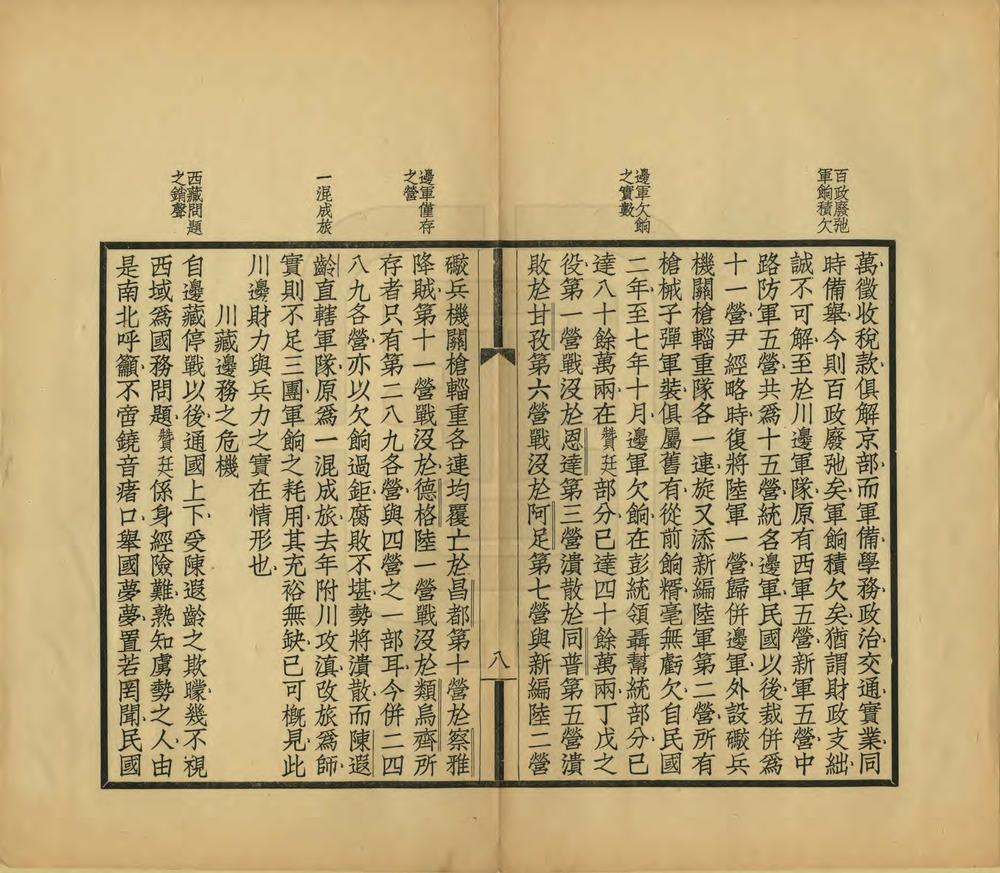 百政廢弛
軍餉積欠
邊軍欠餉
之實數
萬徵收稅款俱解京部而軍備學務政治交通實業同
時備舉今則百政廢弛矣軍餉積欠矣猶謂財政支絀
誠不可解至於川邊軍隊原有西軍五營新軍五營中
路防軍五營共爲十五營統名邊軍民國以後裁併爲
十一營尹經略時復將陸軍一營歸併邊軍外設礮兵
機關槍輜重隊各一連旋又添新編陸軍第二營所有
槍械子彈軍裝俱屬舊有從前餉糈毫無虧欠自民國
二年至七年十月邊軍欠餉在彭統領聶幫統部分已
達八十餘萬兩在贊廷部分已達四十餘萬兩丁戊之
役第一營戰沒於恩達第三營潰散於同普第五營潰
敗於甘孜第六營戰沒於阿足第七營與新編陸二營
八
邊軍僅存
之營
一混成旅
西藏問題
之銷聲
礮兵機關槍輜重各連均覆亡於昌都第十營於察雅
降賊第十一營戰沒於德格陸一營戰沒於類烏齊所
存者只有第二八九各營與四營之一部耳今併二四
八九各營亦以欠餉過鉅腐敗不堪勢將潰散而陳遐
齡直轄軍隊原爲一混成旅去年附川攻滇改旅爲師
實則不足三團軍餉之耗用其充裕無缺已可槪見此
川邊財力與兵力之實在情形也
川藏邊務之危機
自邊藏停戰以後通國上下受陳遐齡之欺矇幾不視
西域爲國務問題贊廷係身經險難熟知虜勢之人由
是南北呼籲不啻鐃音瘏口舉國夢夢置若罔聞民國